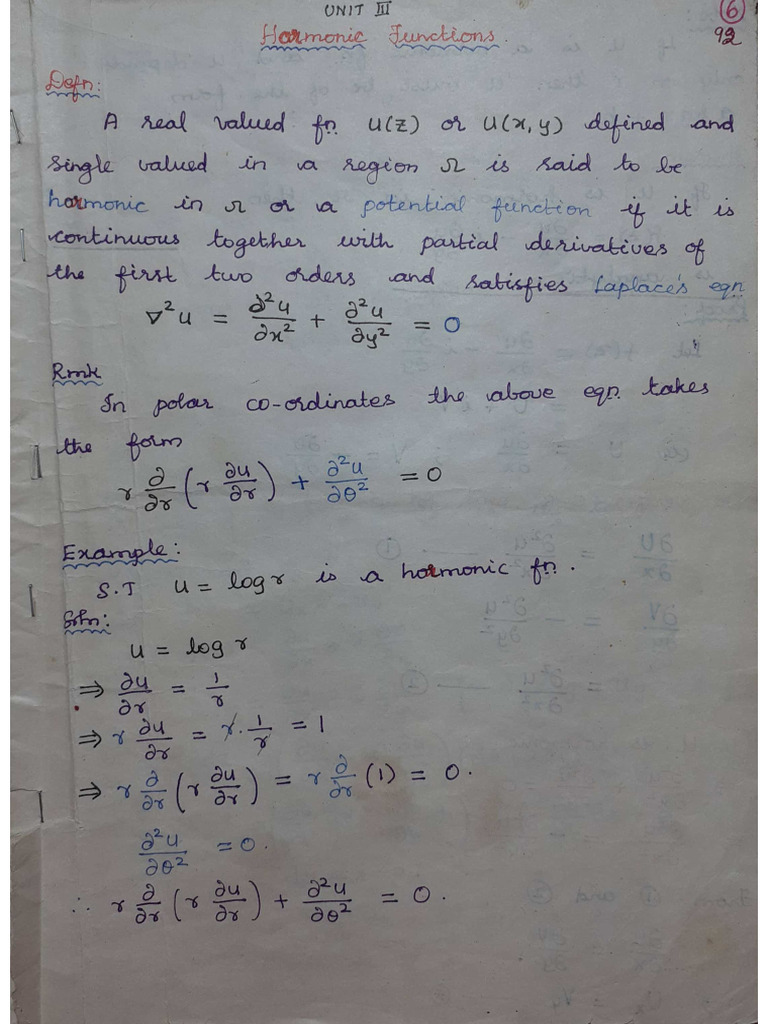 UNIT III
6
Harmonic Functions.
92
Defn:
A real valued fn. u(z) or u(x, y) defined and
single valued in a region Ω is said to be
harmonic in Ω or a potential function if it is
continuous together with partial derivatives of
the first two orders and satisfies Laplace's eqn
∇²u = ∂²u/∂x² + ∂²u/∂y² = 0
Rmk
In polar co-ordinates the above eqn. takes
the form
r ∂/∂r (r ∂u/∂r) + ∂²u/∂θ² = 0
Example:
S.T u = log r is a harmonic fn.
Soln:
u = log r
⇒ ∂u/∂r = 1/r
⇒ r ∂u/∂r = r · 1/r = 1
⇒ r ∂/∂r (r ∂u/∂r) = r ∂/∂r (1) = 0.
∂²u/∂θ² = 0.
∴ r ∂/∂r (r ∂u/∂r) + ∂²u/∂θ² = 0.